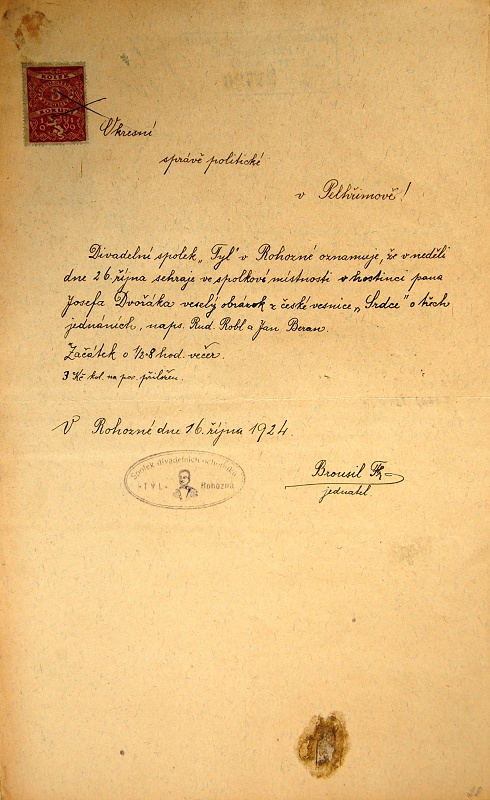 KOLEK
5
1919
Okresní
správě politické
v Pelhřimově!
Divadelní spolek „Tyl" v Rohozné oznamuje, že v neděli
dne 26. října sehraje ve spolkové místnosti v hostinci pana
Josefa Dvořáka veselý obrázek z české vesnice „Srdce" o třech
jednáních, naps. Rud. Robl a Jan Beran.
Začátek o 1/2 8 hod. večer.
3 Kč kol. na pov. přiložen.
V Rohozné dne 16. října 1924.
Spolek divadelních ochotníků
"TYL" Rohozná
Brousil Fr.
jednatel